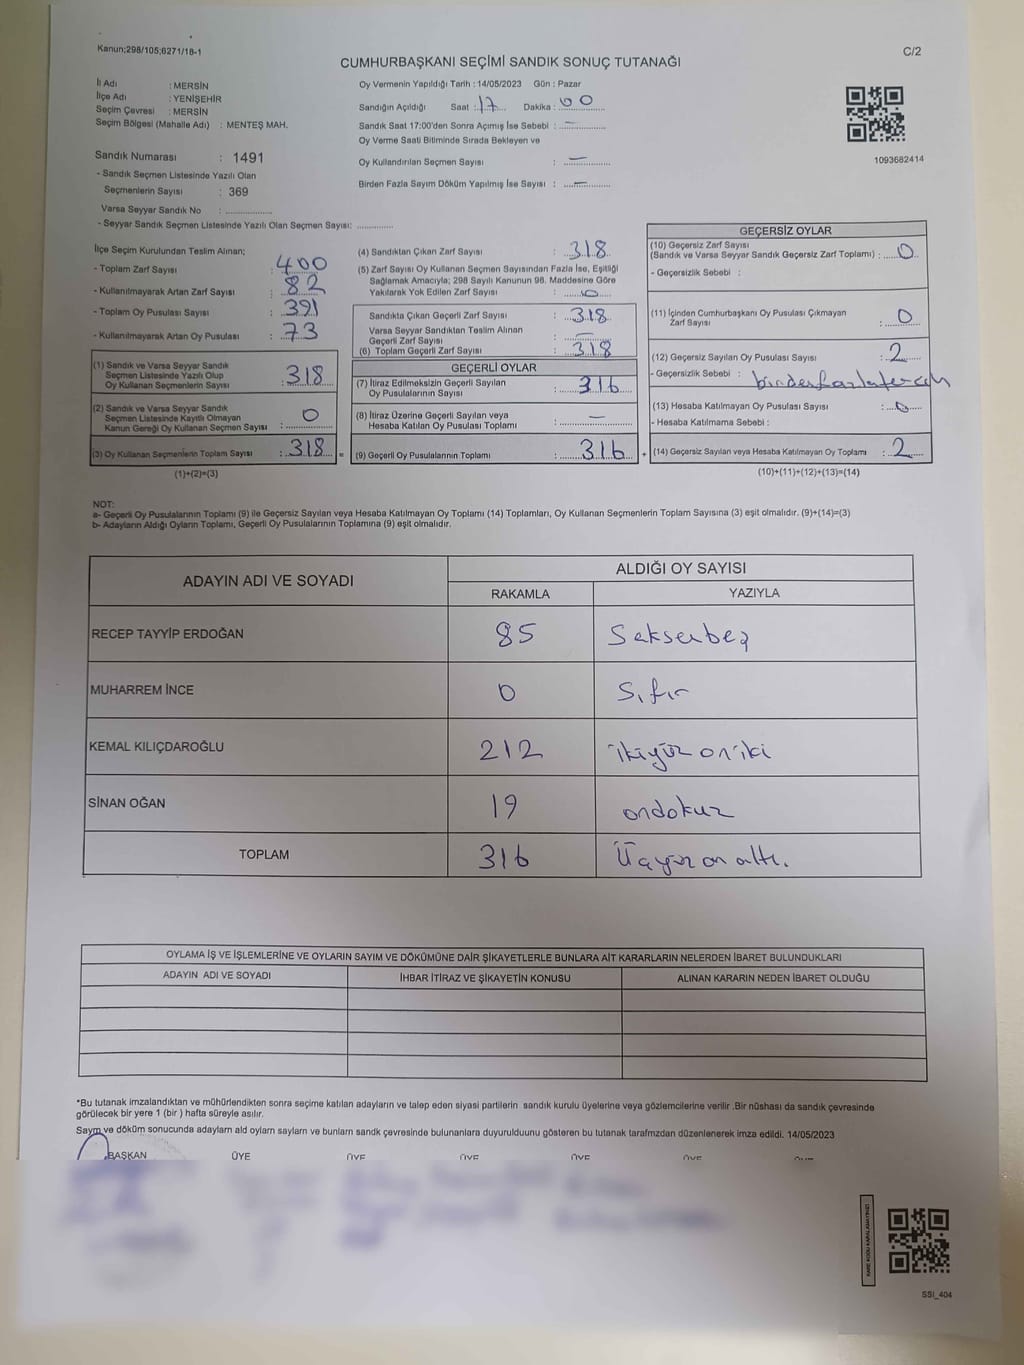 Kanun;298/105;6271/18-1
C/2
CUMHURBAŞKANI SEÇİMİ SANDIK SONUÇ TUTANAĞI
İl Adı : MERSİN
İlçe Adı : YENİŞEHİR
Seçim Çevresi : MERSİN
Seçim Bölgesi (Mahalle Adı) : MENTEŞ MAH.
Sandık Numarası : 1491
- Sandık Seçmen Listesinde Yazılı Olan
Seçmenlerin Sayısı : 369
Varsa Seyyar Sandık No : ..................
- Seyyar Sandık Seçmen Listesinde Yazılı Olan Seçmen Sayısı: .............
Oy Vermenin Yapıldığı Tarih : 14/05/2023 Gün : Pazar
Sandığın Açıldığı Saat : 17 Dakika : 00
Sandık Saat 17:00'den Sonra Açımış İse Sebebi : —
Oy Verme Saati Bitiminde Sırada Bekleyen ve
Oy Kullandırılan Seçmen Sayısı : —
Birden Fazla Sayım Döküm Yapılmış İse Sayısı : —
1093682414
İlçe Seçim Kurulundan Teslim Alınan;
- Toplam Zarf Sayısı : 400
- Kullanılmayarak Artan Zarf Sayısı : 82
- Toplam Oy Pusulası Sayısı : 391
- Kullanılmayarak Artan Oy Pusulası : 73
(1) Sandık ve Varsa Seyyar Sandık
Seçmen Listesinde Yazılı Olup
Oy Kullanan Seçmenlerin Sayısı : 318
(2) Sandık ve Varsa Seyyar Sandık
Seçmen Listesinde Kayıtlı Olmayan
Kanun Gereği Oy Kullanan Seçmen Sayısı : 0
(3) Oy Kullanan Seçmenlerin Toplam Sayısı : 318
(1)+(2)=(3)
(4) Sandıktan Çıkan Zarf Sayısı : 318
(5) Zarf Sayısı Oy Kullanan Seçmen Sayısından Fazla İse, Eşitliği
Sağlamak Amacıyla; 298 Sayılı Kanunun 98. Maddesine Göre
Yakılarak Yok Edilen Zarf Sayısı : 0
Sandıkta Çıkan Geçerli Zarf Sayısı : 318
Varsa Seyyar Sandıktan Teslim Alınan
Geçerli Zarf Sayısı : —
(6) Toplam Geçerli Zarf Sayısı : 318
GEÇERLİ OYLAR
(7) İtiraz Edilmeksizin Geçerli Sayılan
Oy Pusulalarının Sayısı : 316
(8) İtiraz Üzerine Geçerli Sayılan veya
Hesaba Katılan Oy Pusulası Toplamı : —
= (9) Geçerli Oy Pusulalarının Toplamı : 316
GEÇERSİZ OYLAR
(10) Geçersiz Zarf Sayısı
(Sandık ve Varsa Seyyar Sandık Geçersiz Zarf Toplamı) : 0
- Geçersizlik Sebebi :
(11) İçinden Cumhurbaşkanı Oy Pusulası Çıkmayan
Zarf Sayısı : 0
(12) Geçersiz Sayılan Oy Pusulası Sayısı : 2
- Geçersizlik Sebebi : birden fazla tercih
(13) Hesaba Katılmayan Oy Pusulası Sayısı : 0
- Hesaba Katılmama Sebebi :
+ (14) Geçersiz Sayılan veya Hesaba Katılmayan Oy Toplamı : 2
(10)+(11)+(12)+(13)=(14)
NOT:
a- Geçerli Oy Pusulalarının Toplamı (9) ile Geçersiz Sayılan veya Hesaba Katılmayan Oy Toplamı (14) Toplamları, Oy Kullanan Seçmenlerin Toplam Sayısına (3) eşit olmalıdır. (9)+(14)=(3)
b- Adayların Aldığı Oyların Toplamı, Geçerli Oy Pusulalarının Toplamına (9) eşit olmalıdır.
ADAYIN ADI VE SOYADI ALDIĞI OY SAYISI
RAKAMLA YAZIYLA
RECEP TAYYİP ERDOĞAN 85 Seksenbeş
MUHARREM İNCE 0 Sıfır
KEMAL KILIÇDAROĞLU 212 ikiyüz oniki
SİNAN OĞAN 19 ondokuz
TOPLAM 316 Üçyüz on altı.
OYLAMA İŞ VE İŞLEMLERİNE VE OYLARIN SAYIM VE DÖKÜMÜNE DAİR ŞİKAYETLERLE BUNLARA AİT KARARLARIN NELERDEN İBARET BULUNDUKLARI
ADAYIN ADI VE SOYADI İHBAR İTİRAZ VE ŞİKAYETİN KONUSU ALINAN KARARIN NEDEN İBARET OLDUĞU
*Bu tutanak imzalandıktan ve mühürlendikten sonra seçime katılan adayların ve talep eden siyasi partilerin sandık kurulu üyelerine veya gözlemcilerine verilir .Bir nüshası da sandık çevresinde
görülecek bir yere 1 (bir ) hafta süreyle asılır.
Sayım ve döküm sonucunda adayların ald oyların sayların ve bunların sandk çevresinde bulunanlara duyurulduunu gösteren bu tutanak tarafmzdan düzenlenerek imza edildi. 14/05/2023
BAŞKAN ÜYE ÜYE ÜYE ÜYE ÜYE
SSI_404